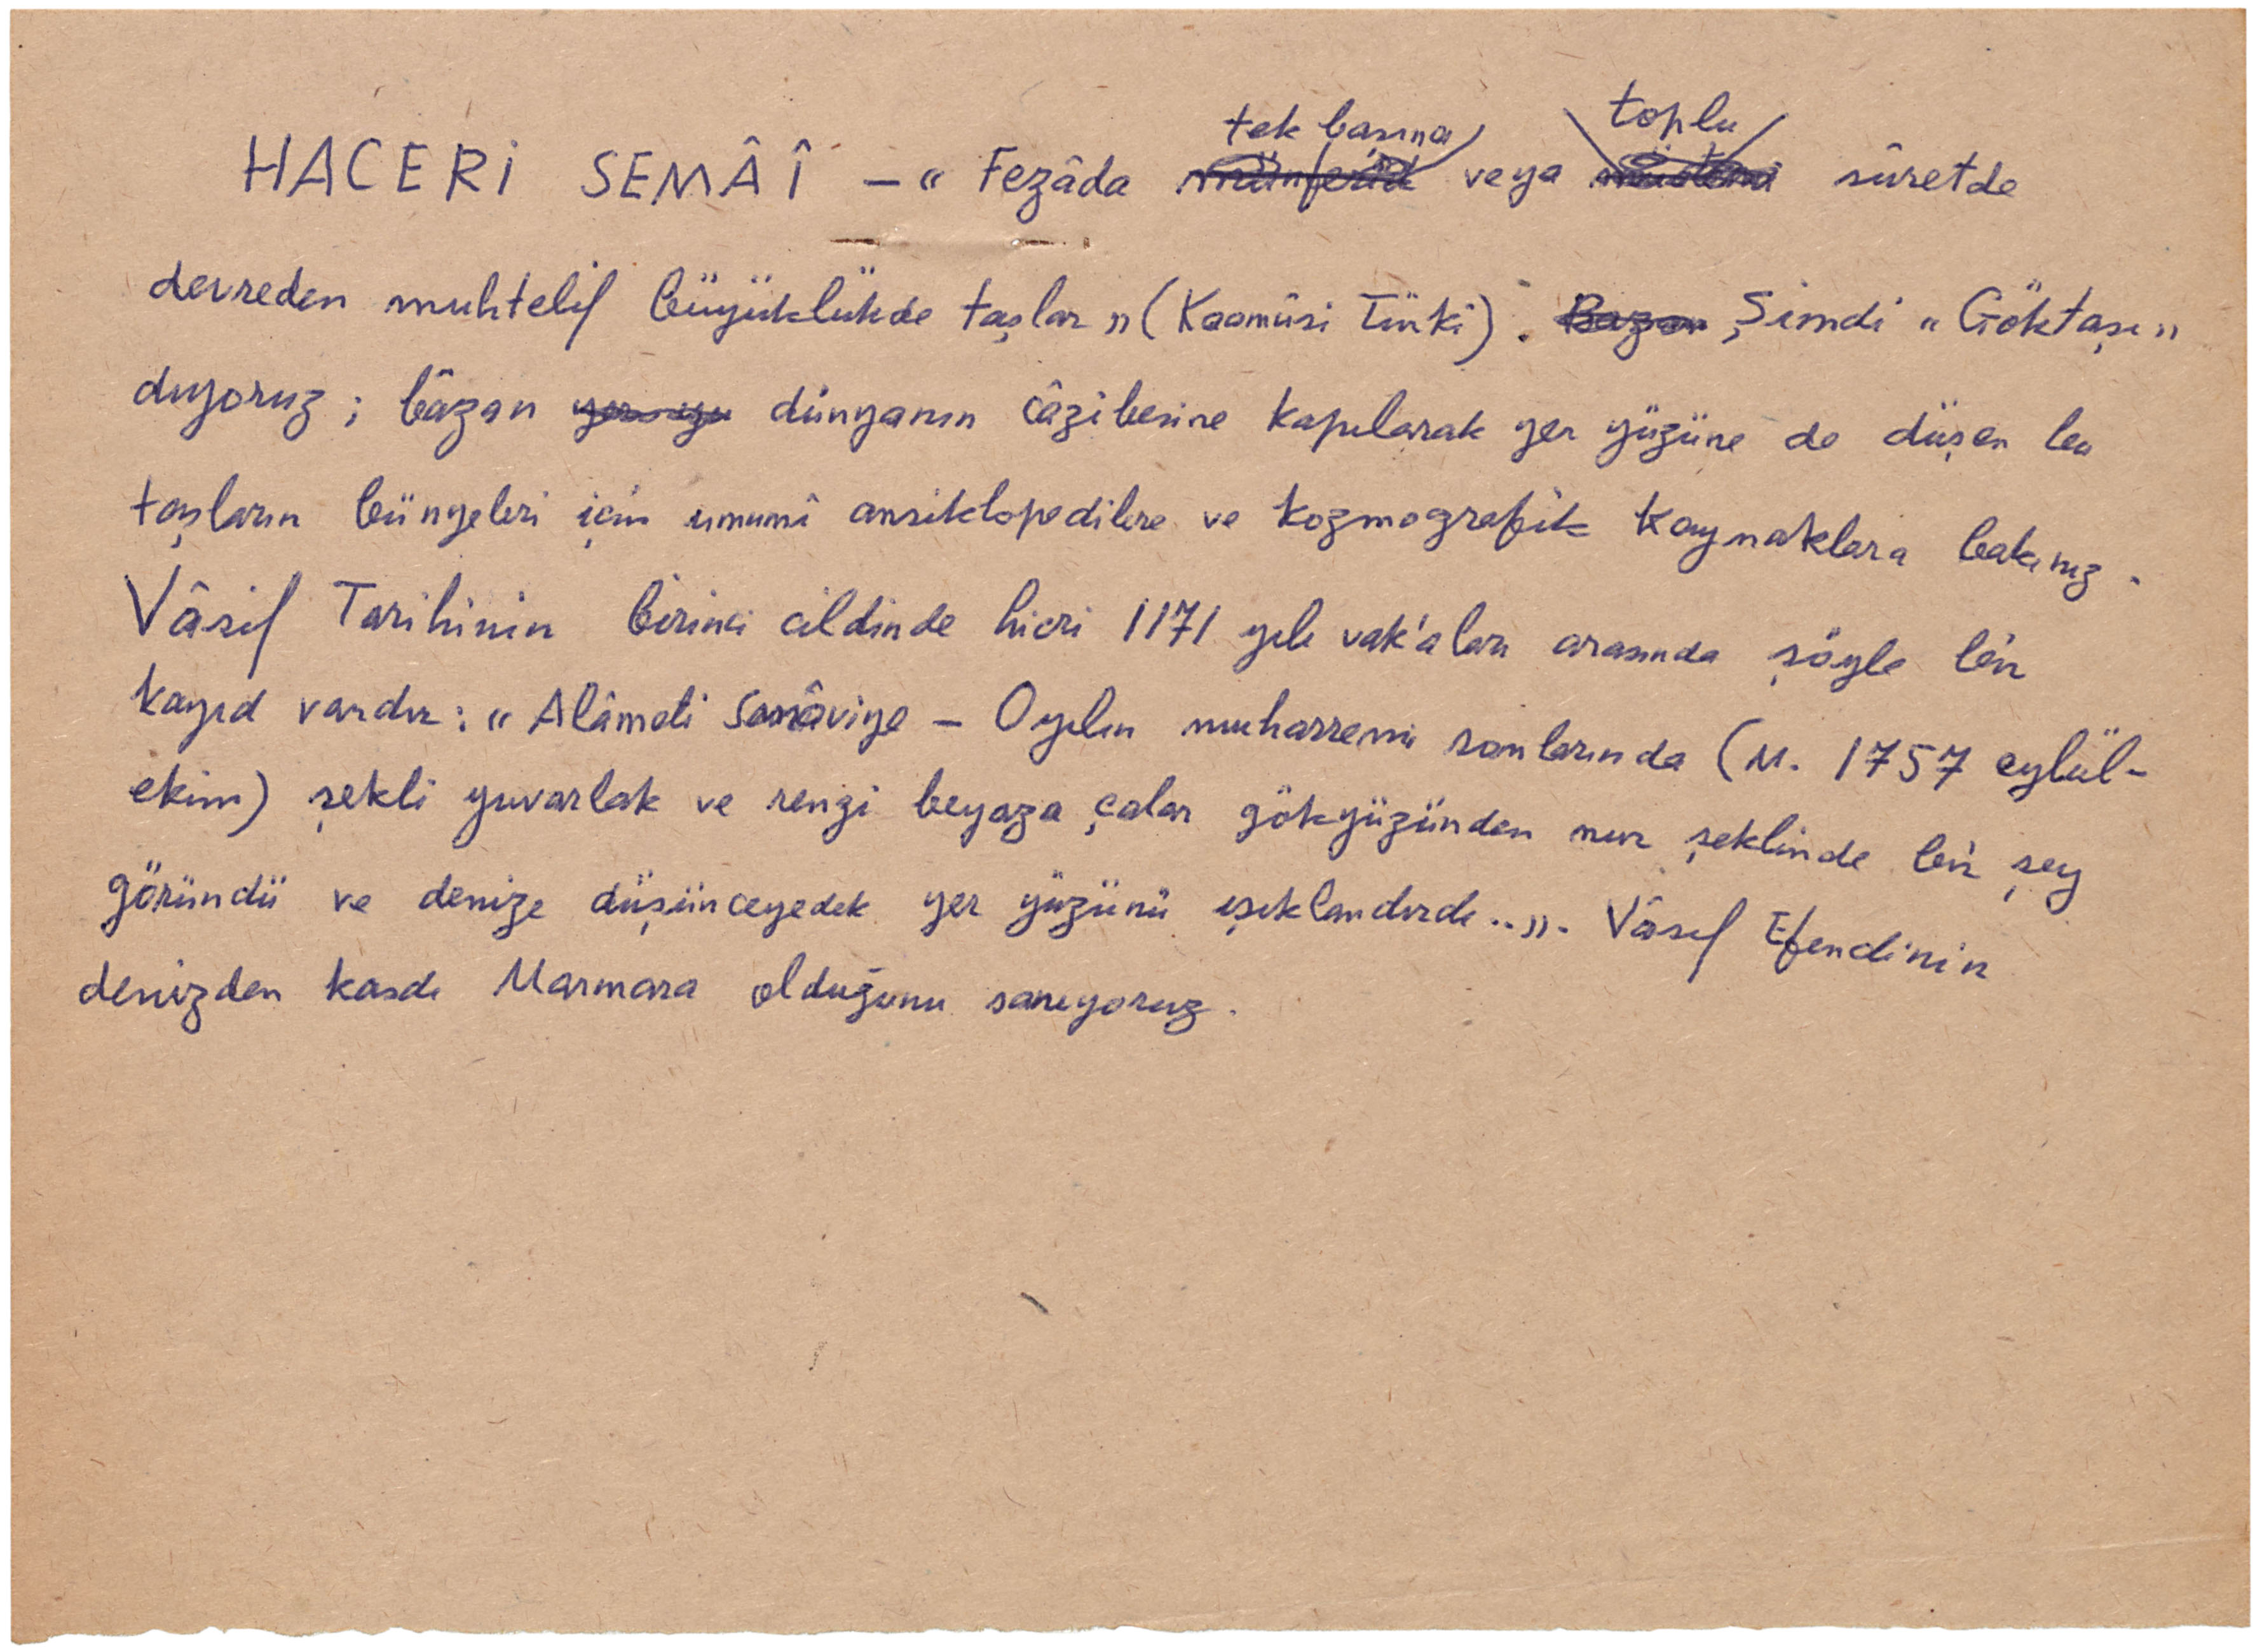 tek başına toplu
HACERİ SEMÂÎ – « Fezâda münferid veya sûretde
devreden muhtelif büyüklükde taşlar » (Kaamûsi Türkî). Bazan Şimdi « Göktaşı »
diyoruz ; bâzan dünyanın câzibesine kapılarak yer yüzüne de düşen bu
taşların bünyeleri için umumî ansiklopedilere ve kozmografik kaynaklara bakınız .
Vâsıf Tarihinin birinci cildinde hicri 1171 yılı vak'aları arasında şöyle bir
kayıd vardır : « Alâmeti Semâviye – O yılın muharremi sonlarında (M. 1757 eylül-
ekim) şekli yuvarlak ve rengi beyaza çalar gökyüzünden nur şeklinde bir şey
göründü ve denize düşünceyedek yer yüzünü ışıklandırdı .. ». Vâsıf Efendinin
denizden kasdı Marmara olduğunu sanıyoruz .